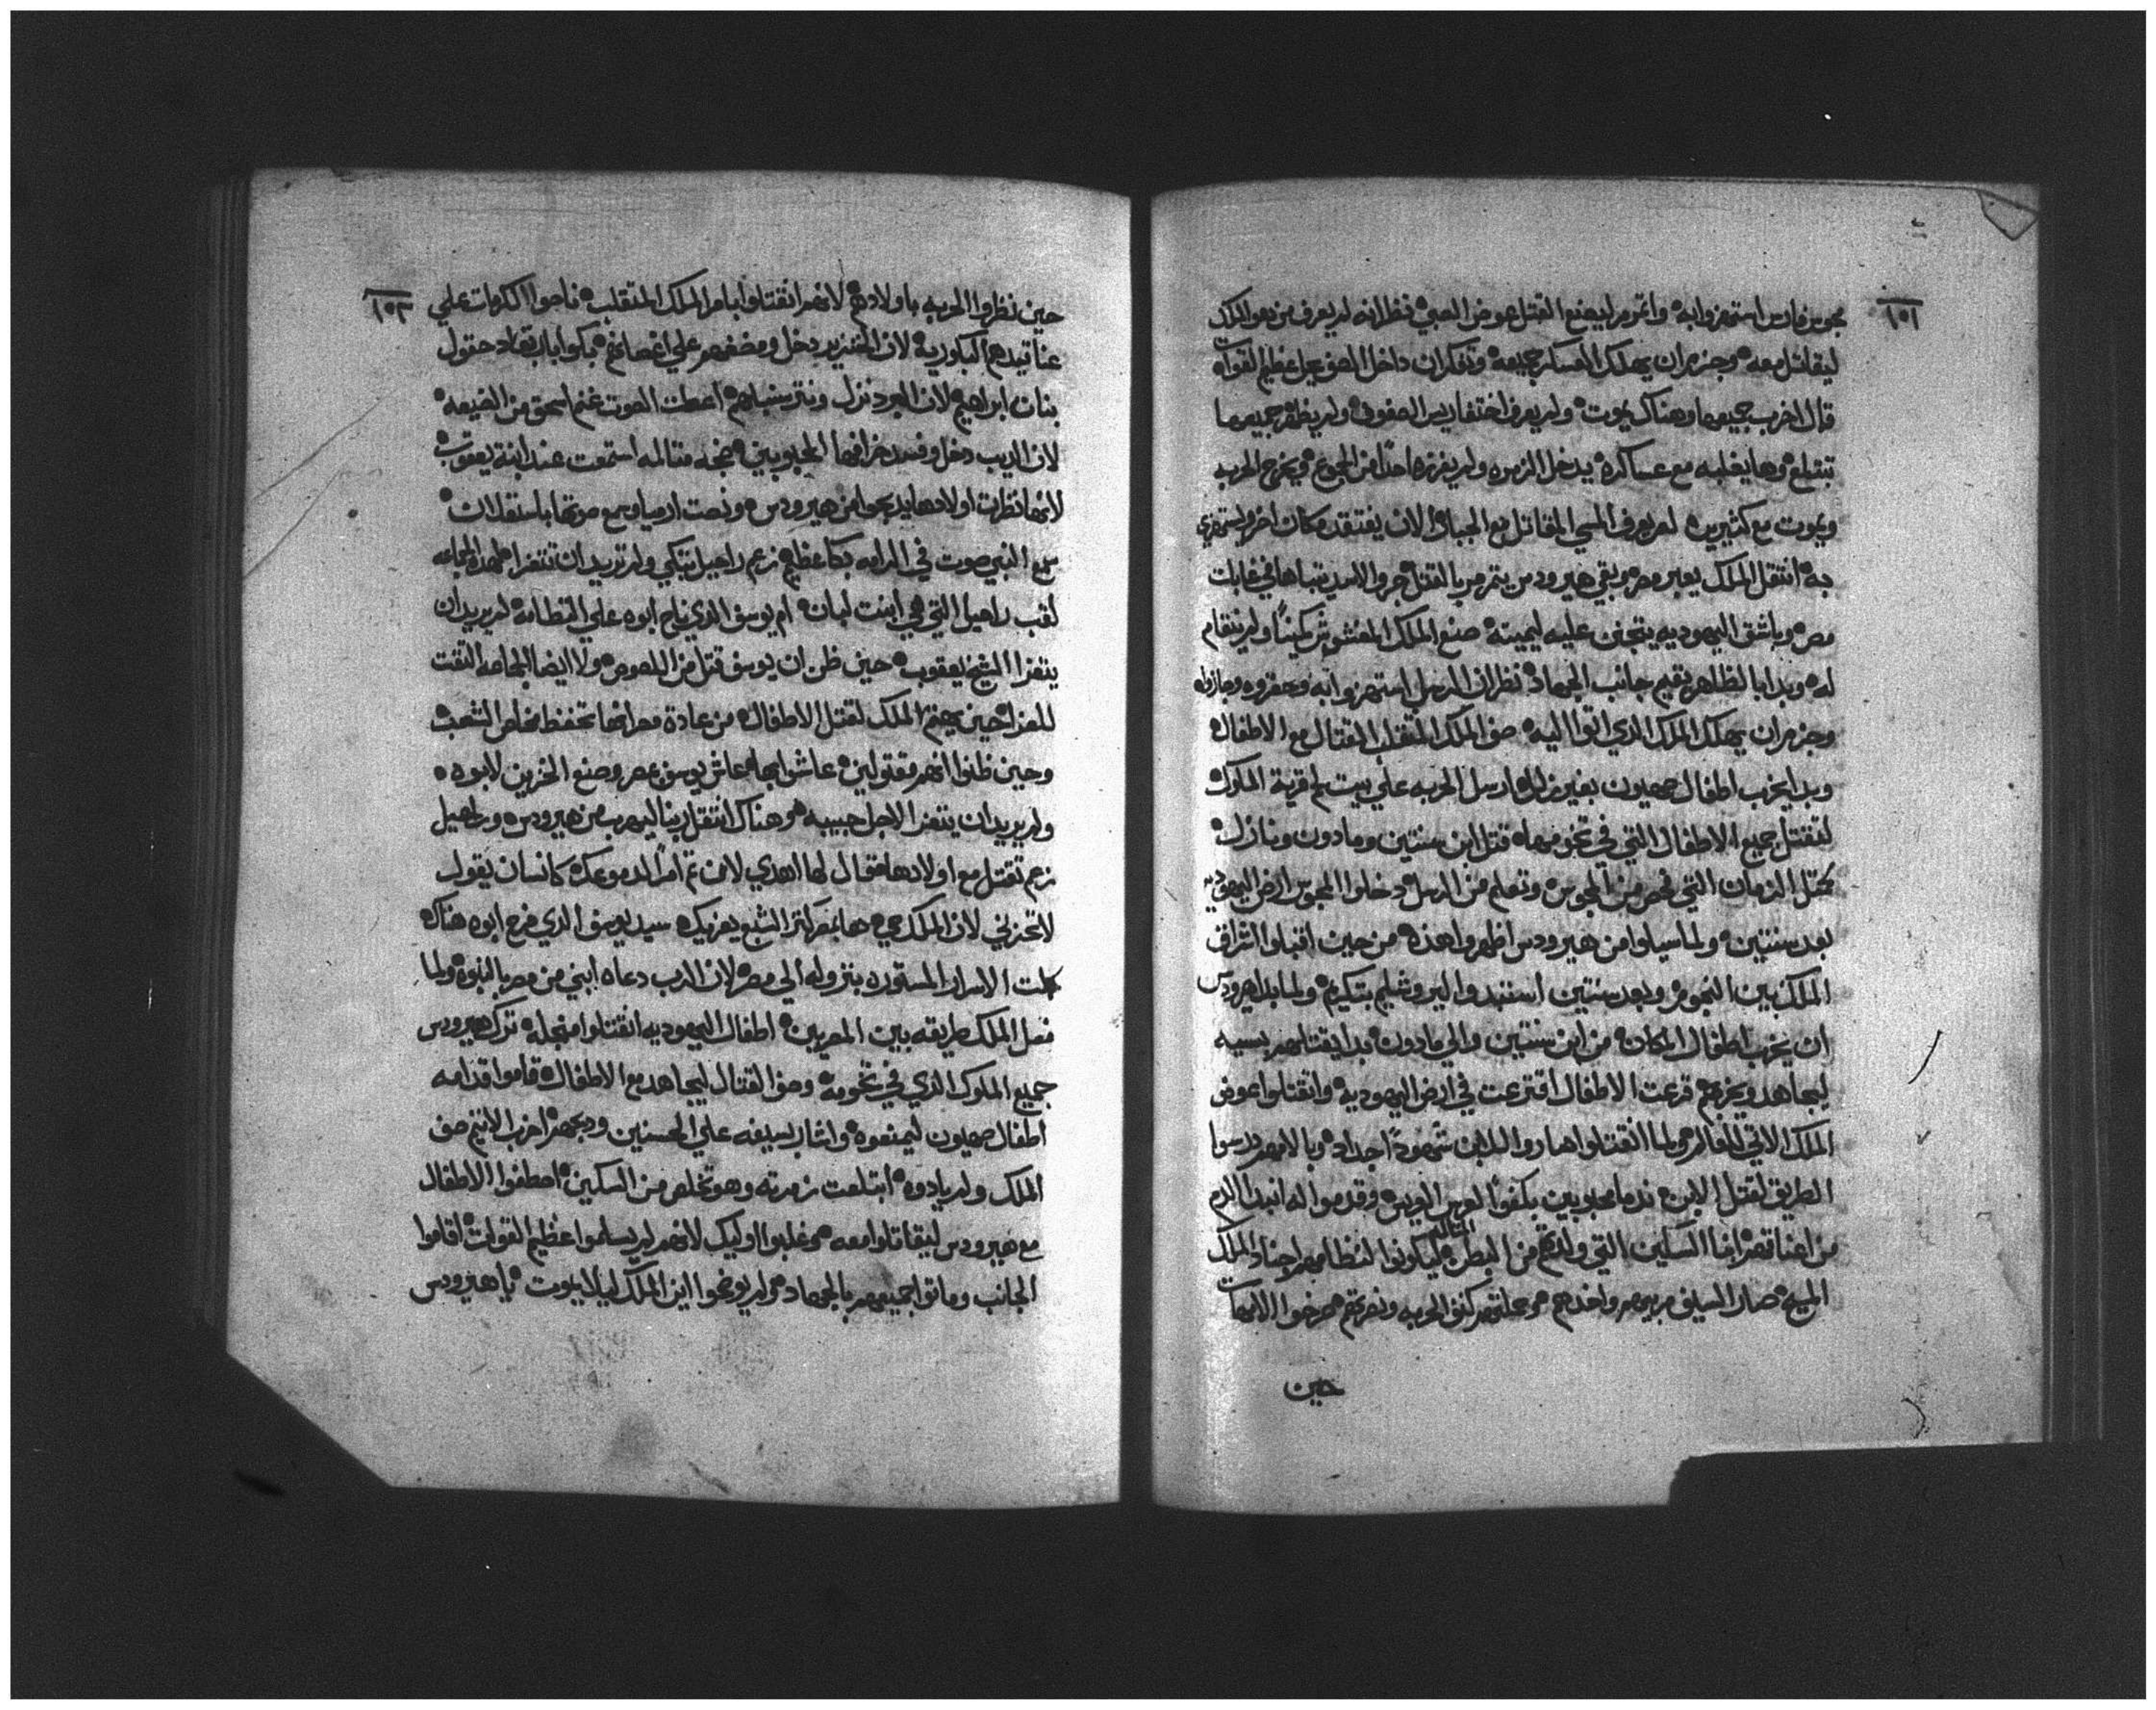 ١٥٢
مجوس فارس استهزوا به وانتم ليصنع القتل عوض الصبي فظن انه لم يعرف من هو الملك
ليقاتل معه وجزم ان يهلك العساكر جميعه وتفكر ان داخل الصف جبل عظيم القوات
قال اخرب جميعها وهناك يموت ولم يعرف اختفا ريس الصفوف ولم يظفر جميعها
تبتلع وها يغلبه مع عساكره يدخل الزمره ولم يفرزه احدًا من الجموع ويخرج الحربه
ويموت مع كثيرين لم يعرف المسي المقاتل مع الجبار الان يفتقد مكان اخر ويستهزي
به انتقل الملك يعبر مصر وبقي هيرودس يتزمر بالقتل جرو الاسد يتباها في غابات
مصر وباشق اليهوديه يتجنن عليه ليميته صنع الملك المغشوش كمينًا ولم يتقام
له وبدا بالظاهر يقيم جانب الجهاد نظر ان الرسل استهزوا به وحقروه وجازوا
وجزم ان يهلك الملك الذي اتوا اليه صف الملك المتقلب القتال مع الاطفال
وبدا يخرب اطفال صهيون بغير رحمه ارسل الحربه علي بيت لحم قرية الملوك
لتقتل جميع الاطفال التي في تخومها قتل ابن سنتين وما دون ونازل
كمثل الزمان التي فحص من المجوس وتعلم من الرسل دخلوا المجوس ارض اليهوديه
بعد سنتين ولما سيلوا من هيرودس اظهروا هذه من حين اقبلوا اشراق
الملك بين النجوم وبعد سنتين استبدوا اليروشليم بتكريم ولما بدا هيرودس
ان يخرب اطفال المكان من ابن سنتين والي ما دون بدا يقتلهم بسيه
ليجاهد ويخربهم قرعت الاطفال اقترعت في ارض اليهوديه وانقتلوا عوض
الملك الاتي للعالم ولما انقتلوا صاروا للابن شهودًا جداد وبالامهم درسوا
الطريق لقتل الابن ندما محبوبين بكفوا العريس وقدموا له انبدا الدم
من اعناقهم ابنا السكين التي ولدتهم من البطن ليكونوا لنظامهم اجناد الملك
المسيح صار السيف مربيهم واخدهم وحملتهم كنف الحربه ونصرتهم صرخوا الامهات
حين
١٥٣
حين نظروا الحربه باولادهم لانهم انقتلوا بامر الملك المتقلب ناحوا الكرمات علي
عناقيدهم الباكوريه لان الخنزير دخل ومضغهم علي اغصانهم بكوا بابرتعاد حقول
بنات ابراهيم لان البرد نزل ونثر سنبلهم اعطت الصوت غنم اسحق من الضيعه
لان الديب دخل وفسد خرافها المحبوبين ضجه متالمه استمعت عند ابنة يعقوب
لانها نظرت اولادها يدبحوا من هيرودس ونصت ارميا وسمع صوتها باستعلان
سمع النبي صوت في الرامه بكا عظيم زعم راحيل تبكي ولم تريد ان تتعزا لهذه الجماعه
لقب راحيل التي هي ابنت لبان ام يوسف الذي ناح ابوه علي انحطاطه لم يريد ان
يتعزا الشيخ يعقوب حين ظن ان يوسف قتل من اللصوص ولا ايضا الجماعه التقت
للعزا حين يهتم الملك لقتل الاطفال من عادة مصر انها تحفظ مخلص الشعب
وحين ظنوا انهم مقتولين عاشوا بها عاش يوسف بمصر وصنع الحزن لابوه
ولم يريد ان يتعزا لاجل حبيبه وهناك انتقل ربنا ليهرب من هيرودس وراحيل
زعم تقتل مع اولادها فقال لها اهدي لان تم امر الدموعك كانسان يقول
لا تحزني لان الملك حي ها بمصر كنز الشبع يعزيك سيد يوسف الذي فرح ابوه هناك
كملت الاسرار المستوره بنزوله الي مصر لان الرب دعاه ابني من مصر بالنبوه ولما
فعل الملك طريقه بين المصريين اطفال اليهوديه انقتلوا منجله ترك هيرودس
جميع الملوك الذي في تخومه وصف القتال ليجاهد مع الاطفال قاموا قدامه
اطفال صهيون ليمنعوه واشار بسيفه علي الحسنين ودبحهم اخرب الاتيم صف
الملك ولم ياذوه ابتلعت زمرته وهو تخلص من السكين اصطفوا الاطفال
مع هيرودس ليقاتلوا معه وغلبوا اوليك لانهم لم يسلموا عظيم القوات اقاموا
الجانب وماتوا جميعهم بالجهاد ولم يوضحوا اين الملك ليلا يموت يا هيرودس